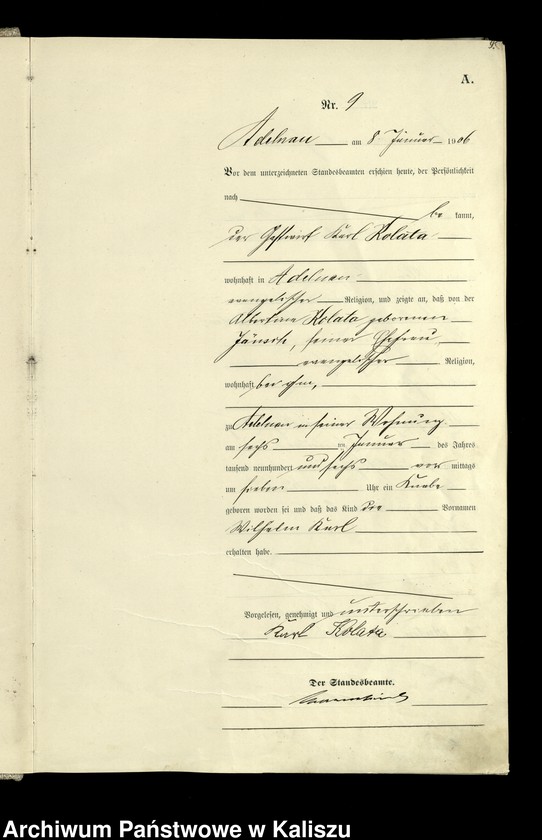 9.
A.
Nr. 9
Adelnau am 8 Januar 1906
Vor dem unterzeichneten Standesbeamten erschien heute, der Persönlichkeit
nach
be kannt,
der Gastwirt Karl Kolata
wohnhaft in Adelnau
evangelischer Religion, und zeigte an, daß von der
Albertine Kolata geborenen
Jänsch, seiner Ehefrau,
evangelischer Religion,
wohnhaft bei ihm,
zu Adelnau in seiner Wohnung
am sechs ten Januar des Jahres
tausend neunhundert und sechs vor mittags
um sieben Uhr ein Knabe
geboren worden sei und daß das Kind die Vornamen
Wilhelm Karl
erhalten habe.
Vorgelesen, genehmigt und unterschrieben
Karl Kolata
Der Standesbeamte.
Archiwum Państwowe w Kaliszu